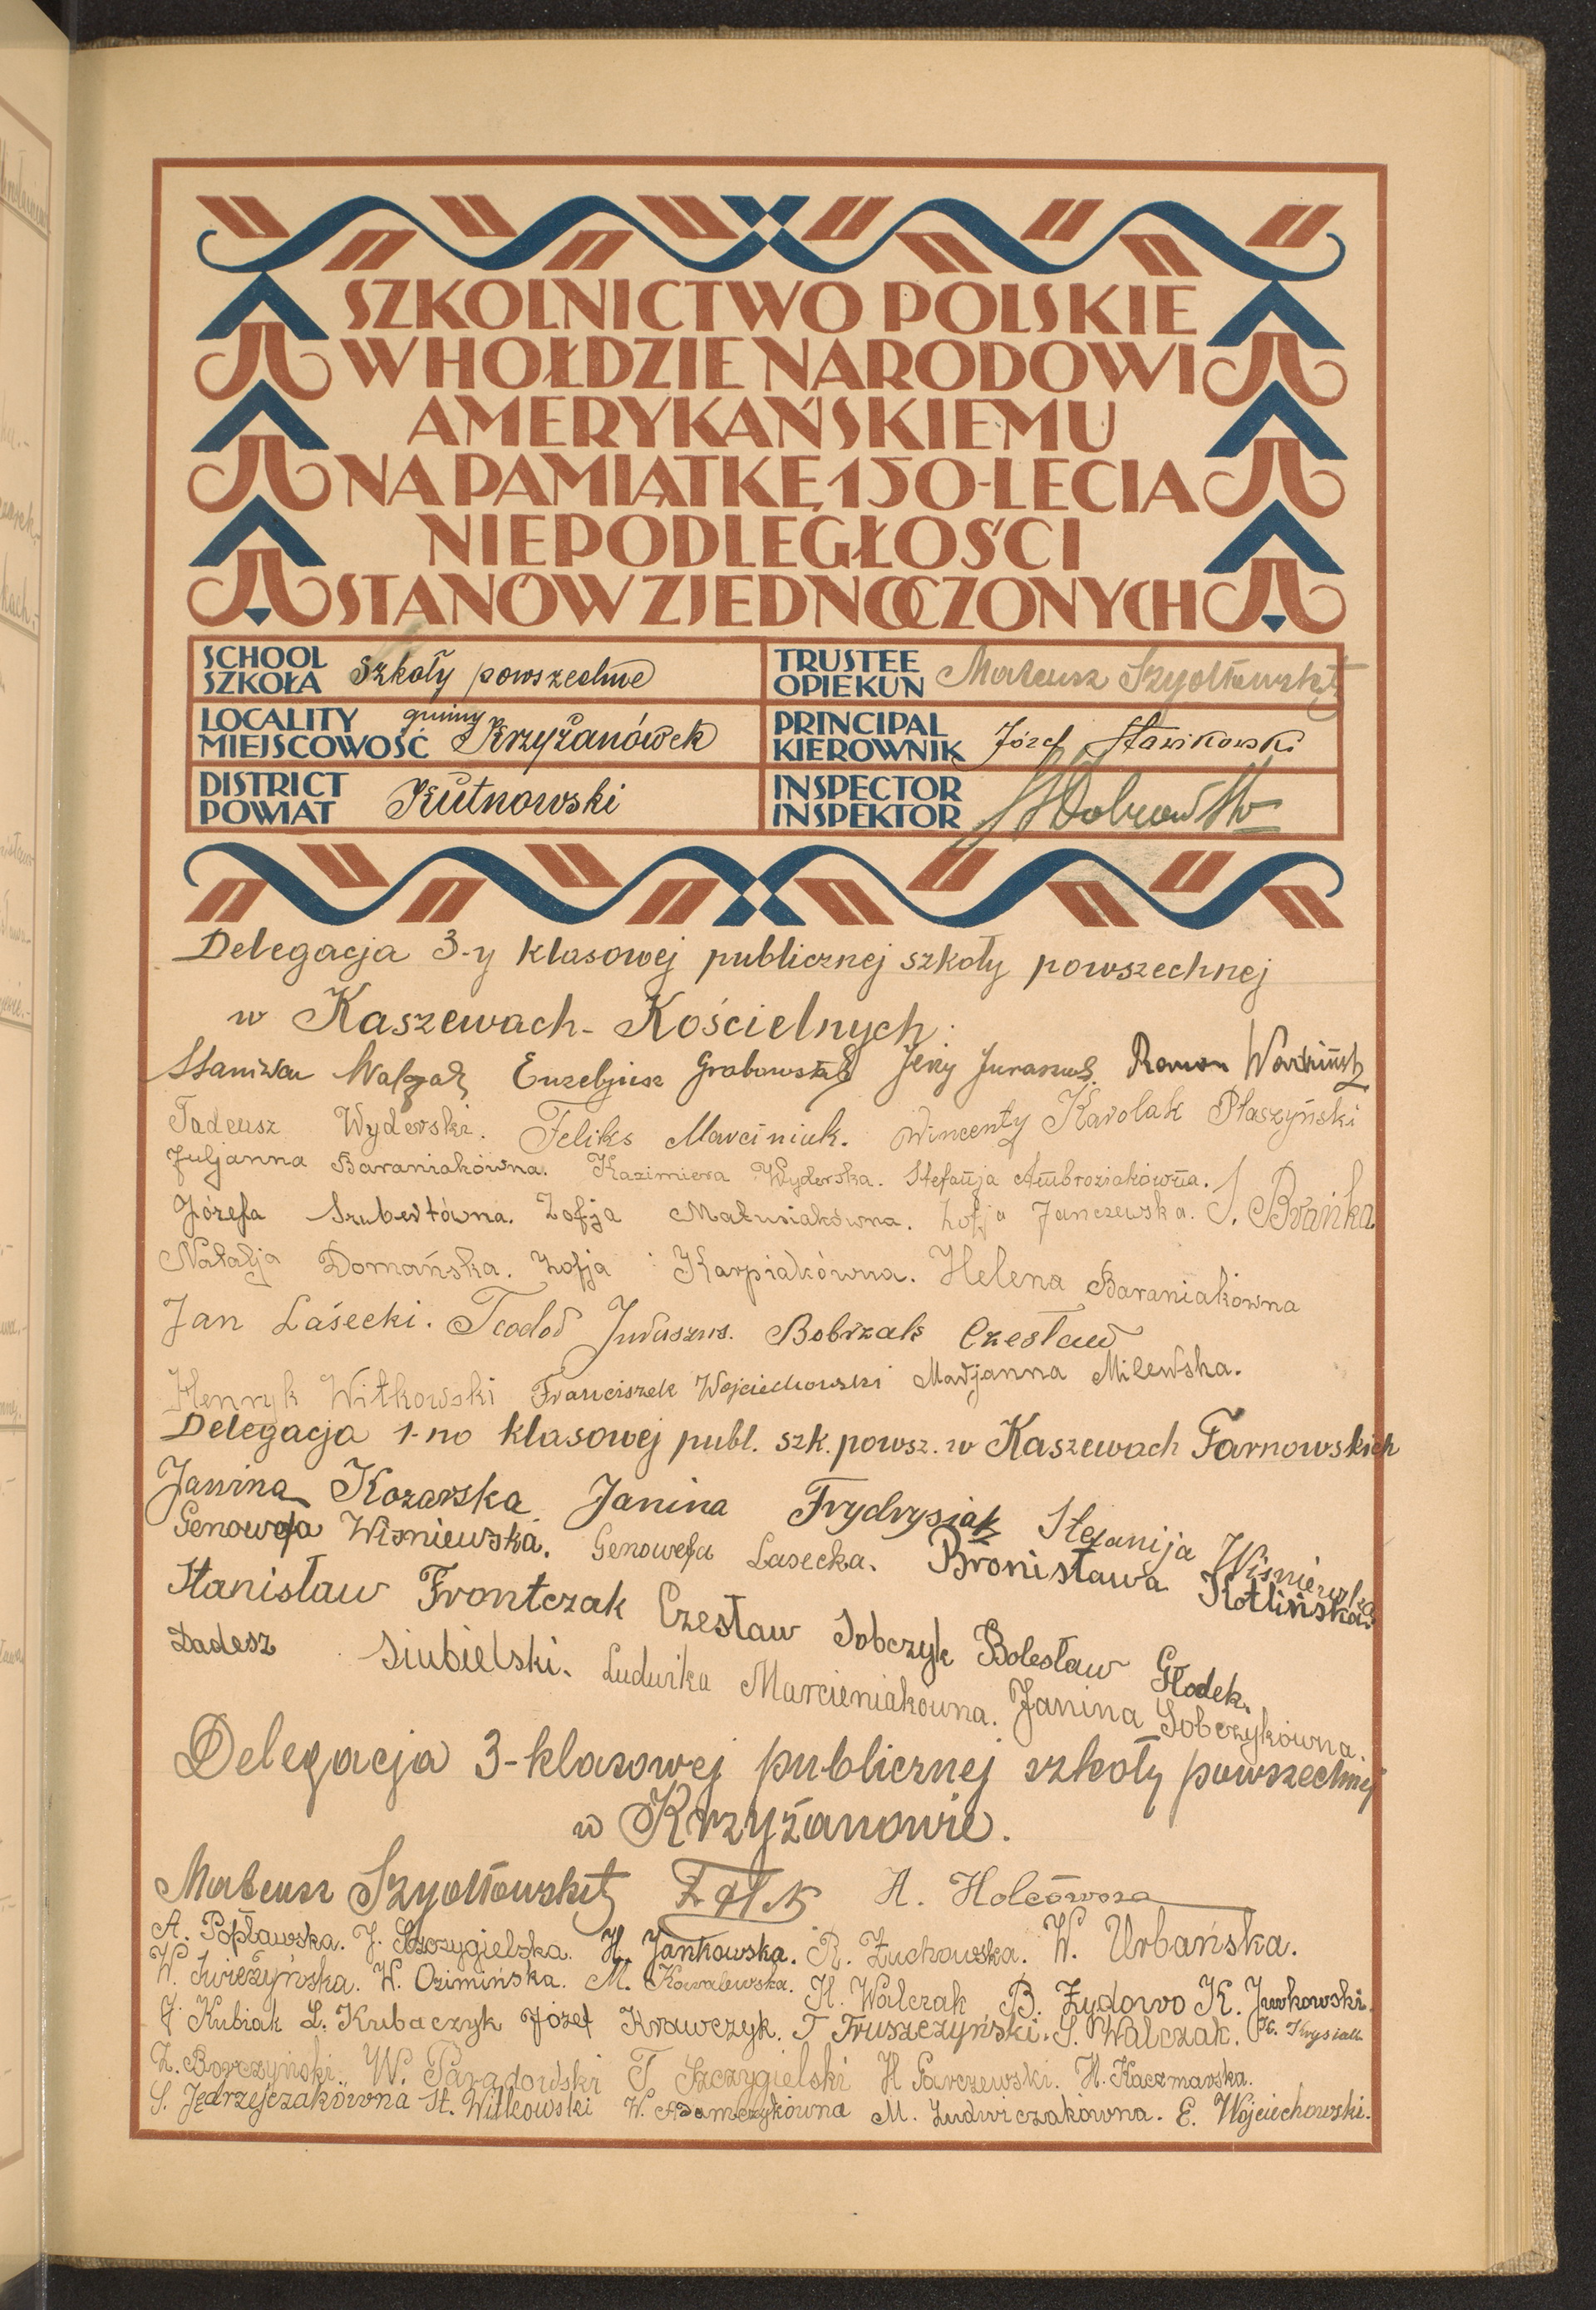 SZKOLNICTWO POLSKIE
W HOŁDZIE NARODOWI
AMERYKAŃSKIEMU
NA PAMIĄTKĘ 150-LECIA
NIEPODLEGŁOŚCI
STANÓW ZJEDNOCZONYCH
SCHOOL SZKOŁA Szkoły powszechne
TRUSTEE OPIEKUN Mateusz Szydłowski
LOCALITY MIEJSCOWOŚĆ gminy Krzyżanówek
PRINCIPAL KIEROWNIK Józef Sławikowski
DISTRICT POWIAT Kutnowski
INSPECTOR INSPEKTOR
Delegacja 3-y klasowej publicznej szkoły powszechnej
w Kaszewach-Kościelnych.
Euzebjusz Grabowski Jerzy Juraszus. Roman
Tadeusz Wyderski. Feliks Marciniuk. Wincenty Karolak Płaszyński
Juljanna Baraniakówna. Kazimiera Wyderska. Stefanja Ambroziakówna. S. Brańka
Józefa Szubertówna. Zofja Matusiakówna. Zofja Janczewska.
Natalja Domańska. Zofja Karpiakówna. Helena Baraniakówna
Jan Lasecki. Teodor Juraszus. Bobrzak Czesław
Henryk Witkowski Franciszek Wojciechowski Marjanna Milewska.
Delegacja 1-no klasowej publ. szk. powsz. w Kaszewach Tarnowskich
Janina Kozarska Janina Frydrysiak Stefanija Wisniewska
Genowefa Wisniewska. Genowefa Lasecka. Bronisława Kotlińska.
Stanisław Frontczak Czesław Sobczyk Bolesław Głodek.
Tadesz Siubielski. Ludwika Marcieniakowna. Janina Sobczykówna.
Delegacja 3-klasowej publicznej szkoły powszechnej
w Krzyżanowie.
Mateusz Szydłowski A. Holcówna
A. Popławska. J. Szczygielska. H. Jankowska. R. Żuchowska. W. Urbańska.
W. Świeżyńska. W. Ozimińska. M. Kowalewska. H. Walczak B. Żydowo K. Jurkowski.
J. Kubiak L. Kubaczyk Józef Krawczyk. T Truszczyński. S. Walczak. K. Krysiak
Z. Borczyński. W. Paradowski T Szczygielski H Parczewski. H. Kaczmarska.
S. Jędrzejczakówna St. Witkowski W. Adamczykówna M. Ludwiczakówna. E. Wojciechowski.